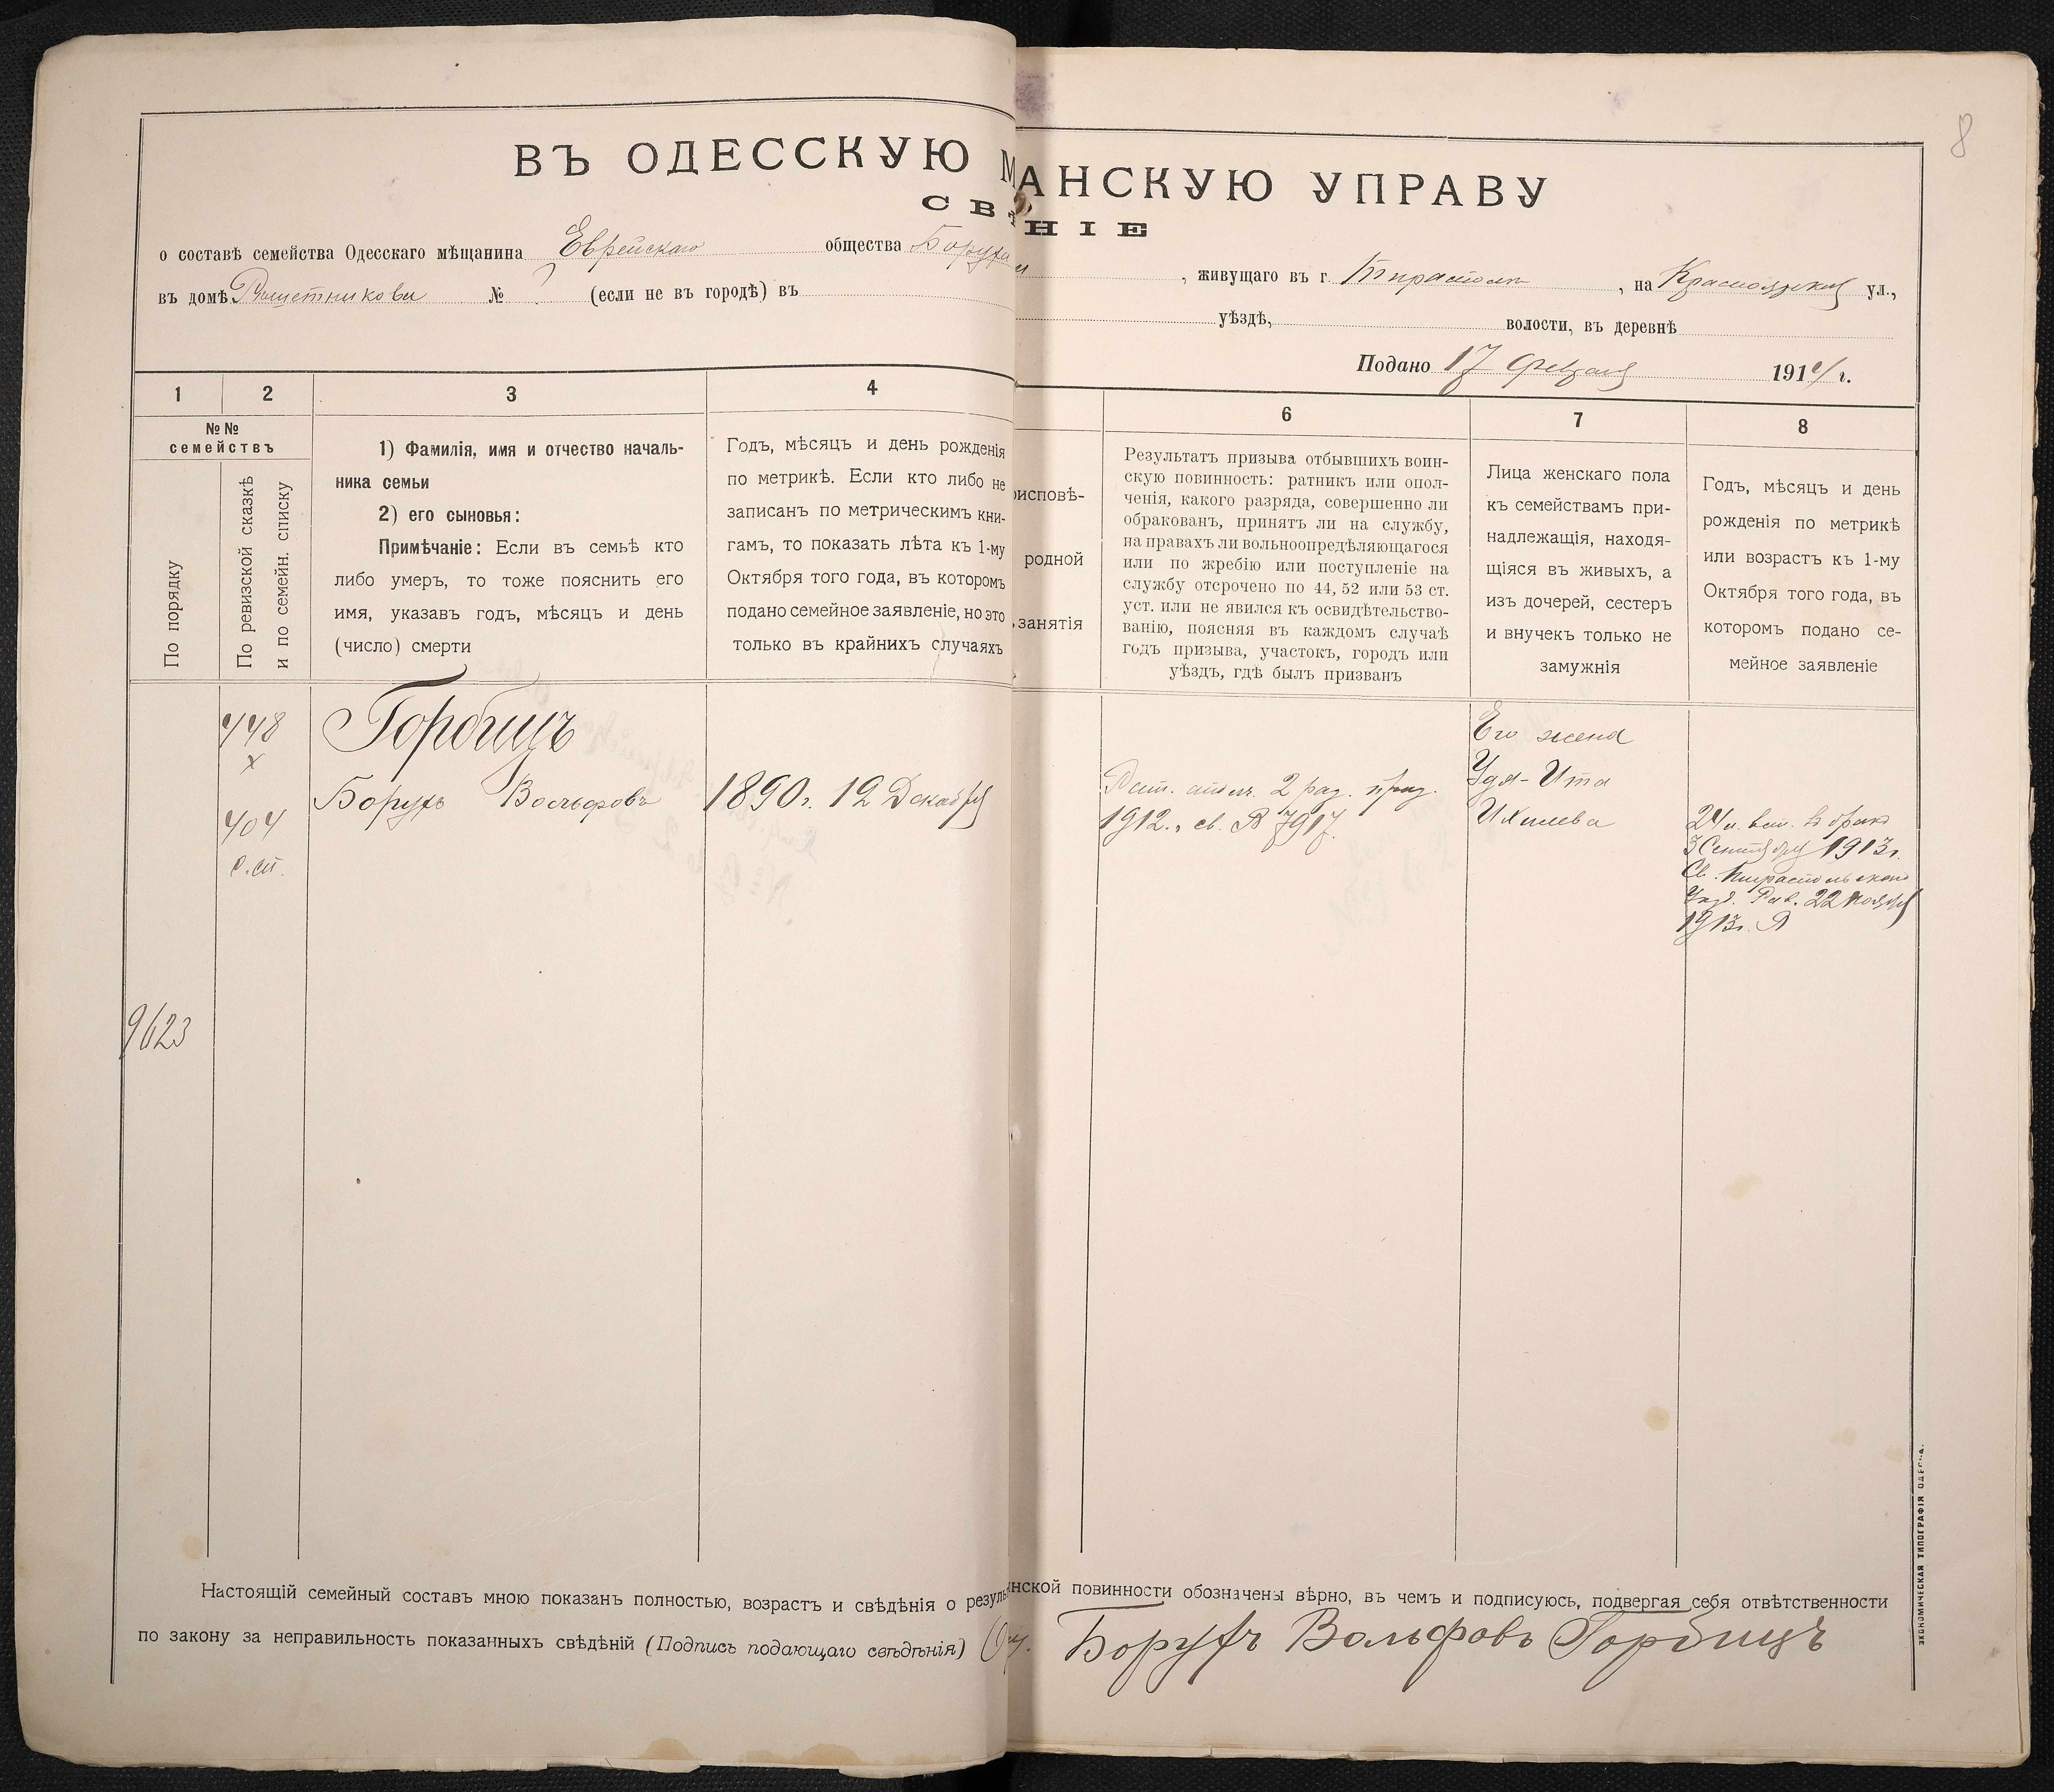 8
ВЪ ОДЕССКУЮ М АНСКУЮ УПРАВУ
СВѢ НІЕ
о составѣ семейства Одесскаго мѣщанина Еврейскаго общества Боруха , живущаго въ г. Тирасполѣ , на ул.,
въ домѣ Рѣшетникова № ? (если не въ городѣ) въ уѣздѣ, волости, въ деревнѣ
Подано 17 Февраля 1914 г.
1
2
3
4
6
7
8
№№
семействъ
По порядку
По ревизской сказкѣ
и по семейн. списку
1) Фамилія, имя и отчество началь-
ника семьи
2) его сыновья:
Примѣчаніе: Если въ семьѣ кто
либо умеръ, то тоже пояснить его
имя, указавъ годъ, мѣсяцъ и день
(число) смерти
Годъ, мѣсяцъ и день рожденія
по метрикѣ. Если кто либо не
записанъ по метрическимъ кни-
гамъ, то показать лѣта къ 1-му
Октября того года, въ которомъ
подано семейное заявленіе, но это
только въ крайнихъ случаяхъ
роисповѣ-
родной
занятія
Результатъ призыва отбывшихъ воин-
скую повинность: ратникъ или опол-
ченія, какого разряда, совершенно ли
обракованъ, принятъ ли на службу,
на правахъ ли вольноопредѣляющагося
или по жребію или поступленіе на
службу отсрочено по 44, 52 или 53 ст.
уст. или не явился къ освидѣтельство-
ванію, поясняя въ каждомъ случаѣ
годъ призыва, участокъ, городъ или
уѣздъ, гдѣ былъ призванъ
Лица женскаго пола
къ семействамъ при-
надлежащія, находя-
щіяся въ живыхъ, а
изъ дочерей, сестеръ
и внучекъ только не
замужнія
Годъ, мѣсяцъ и день
рожденія по метрикѣ
или возрастъ къ 1-му
Октября того года, въ
которомъ подано се-
мейное заявленіе
448
х
404
с.сп.
9623
Горбицъ
Борухъ Вольфовъ
1890 г. 12 Декабря
Рат. опол. 2 раз. приз.
1912 г., св. В 7917.
Его жена
Удя-Ита
Ихилева
24 л. вст. въ бракъ
3 Сентября 1913 г.
Св. Тираспольскаго
Разв. 22 Ноября
1913 г.
Настоящій семейный составъ мною показанъ полностью, возрастъ и свѣдѣнія о резуль инской повинности обозначены вѣрно, въ чемъ и подписуюсь, подвергая себя отвѣтственности
по закону за неправильность показанныхъ свѣдѣній (Подпись подающаго свѣдѣнія) Борухъ Вольфовъ Горбицъ
ЭКОНОМИЧЕСКАЯ ТИПОГРАФІЯ ОДЕССА.